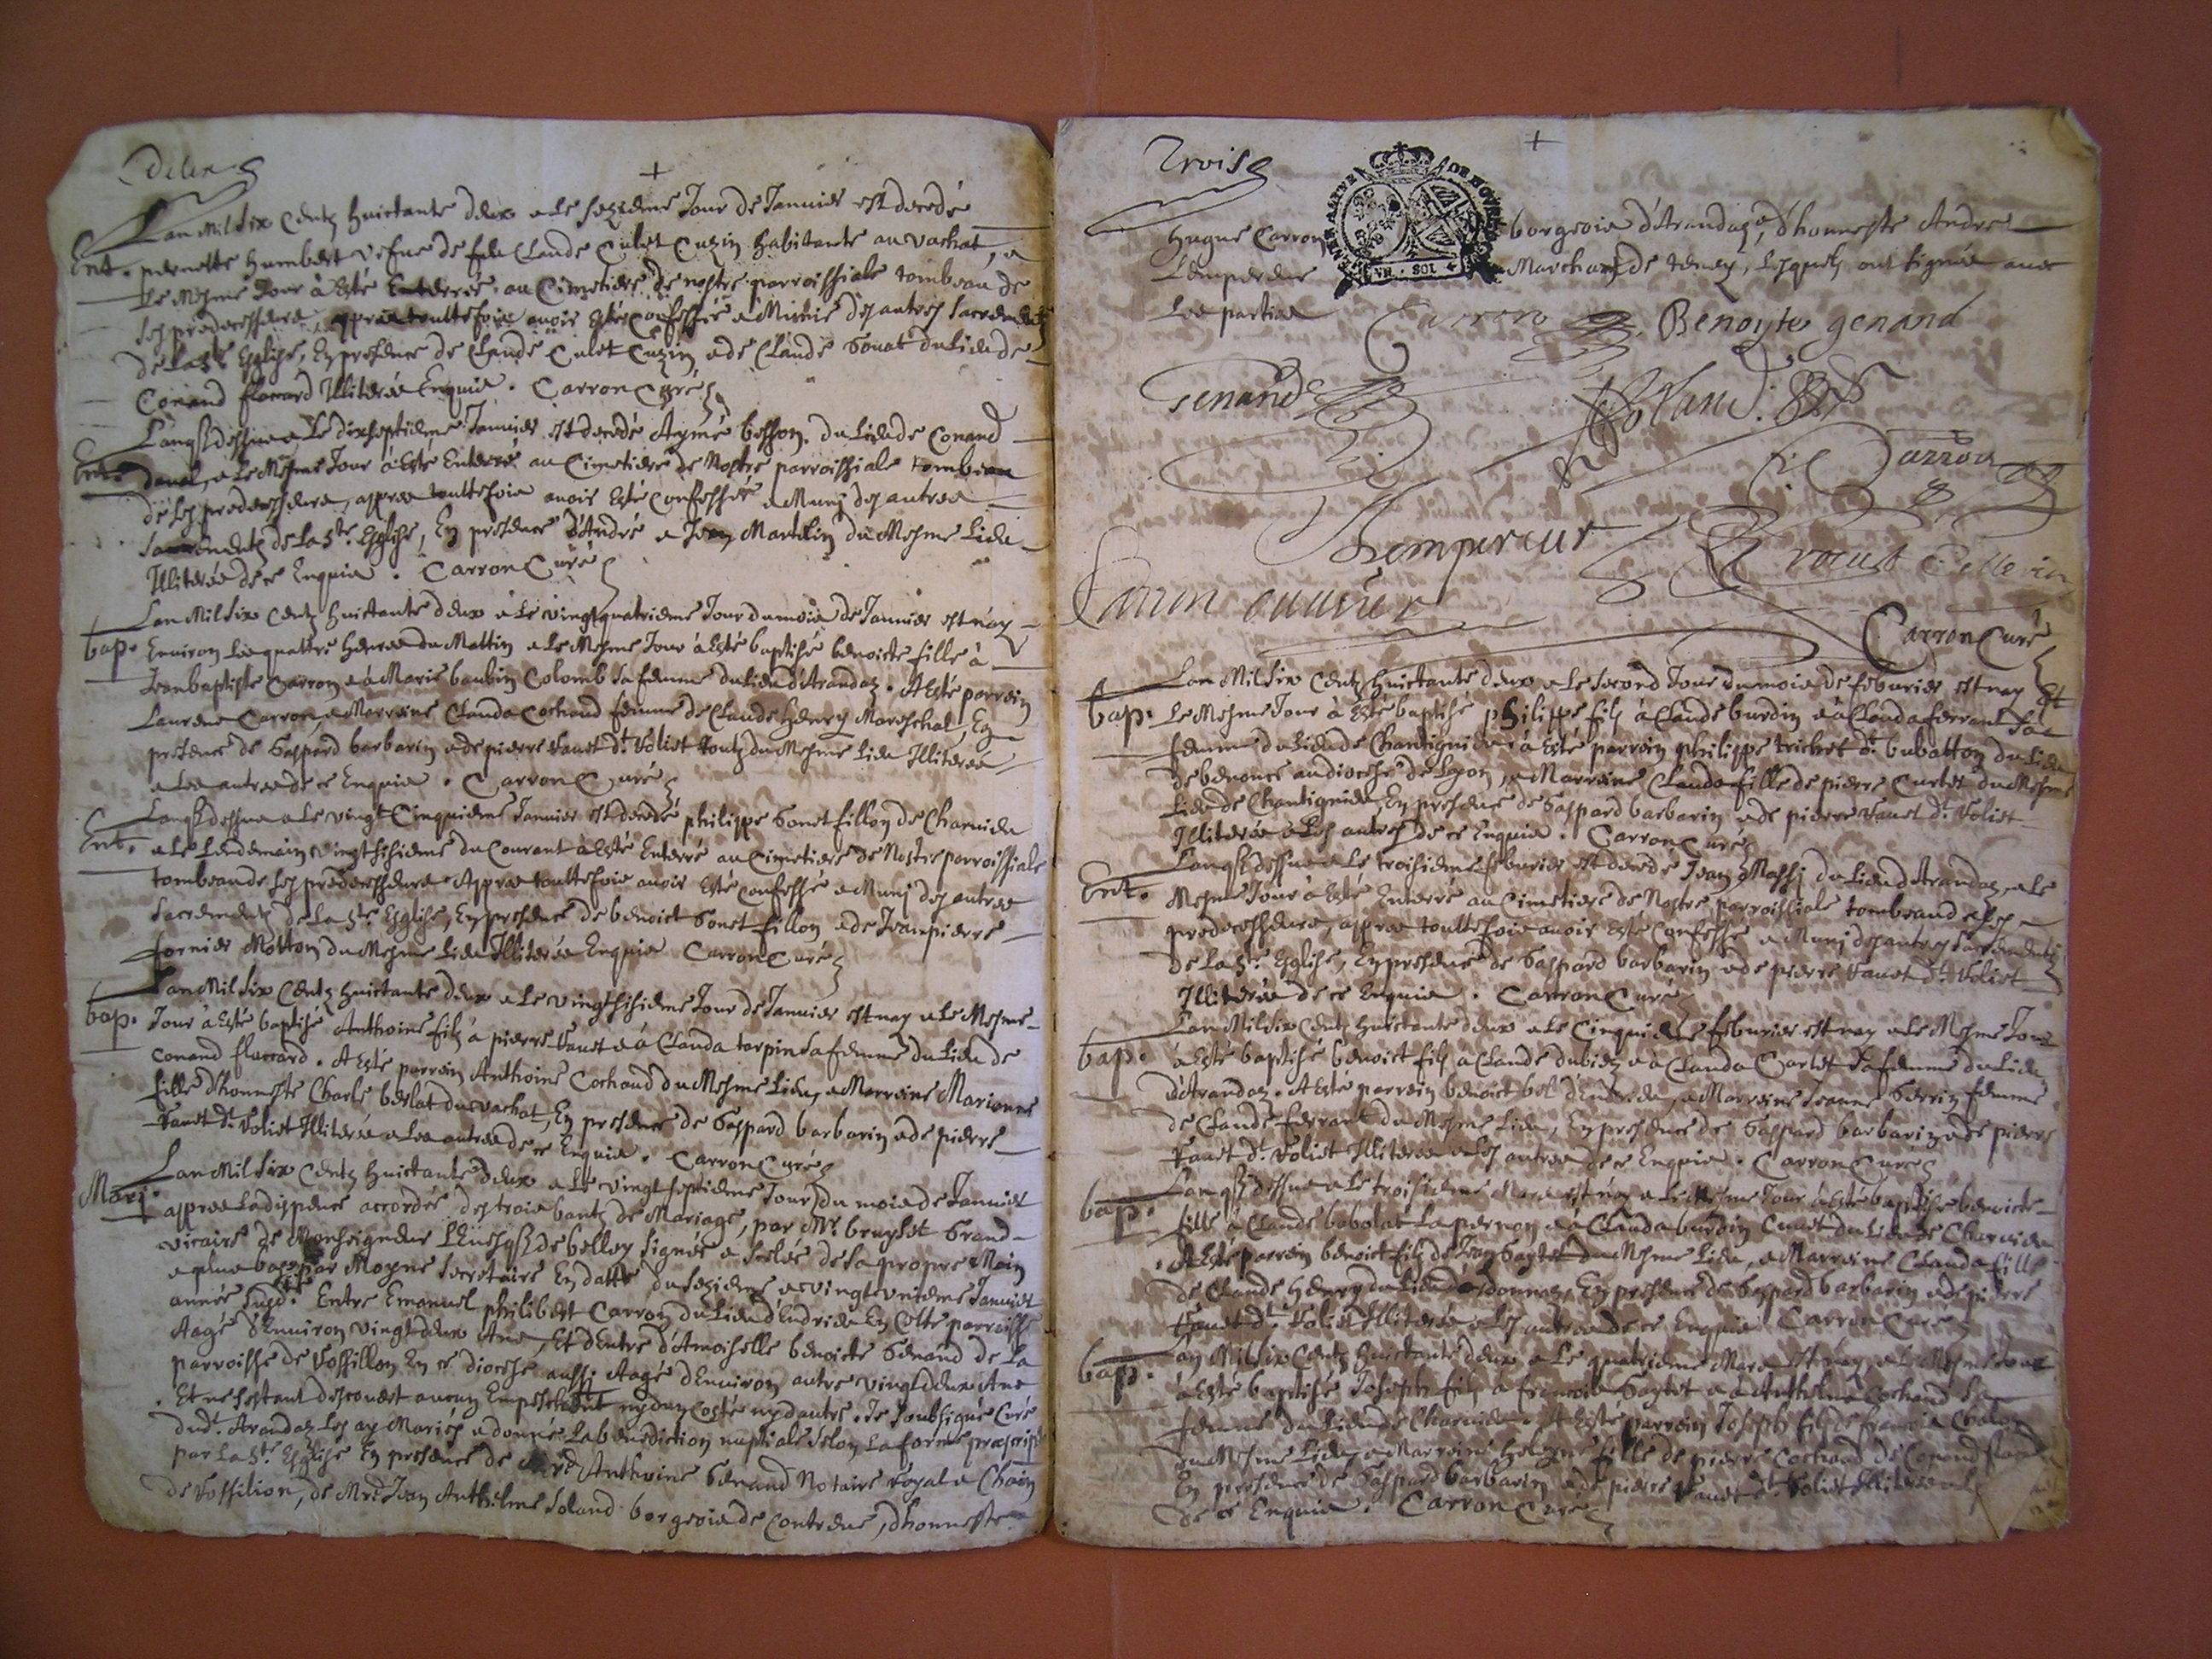 +
Lan Mil Six Centz huictante deux & le seizieme Jour de Januier est decedé
Ent. pernette humbert vefue de feu Claude Culet Cuzin habitante au vachat, &
le mesme Jour à esté Enterrée au Cimetiere de nostre parroissiale tombeau de
ses predecesseurs, appres touttefois auoir esté confessée & Munie des autres sacrementz
de la Ste Esglise, En presence de Claude Culet Cuzin & de Claude Gonat du Lieu de
Conand flaccard Illiterés Enquis. Carron Curé
Lanq dessus & le dixseptieme Januier est decedé Aymé besson du Lieu de Conand
Ent. daual, & le Mesme Jour à esté Enterré au Cimetiere de Nostre parroissiale tombeau
de ses predecesseurs, appres touttefois auoir esté confessé & Muny des autres
sacrementz de la Ste Esglise, En presence d'André & Jean Martelin du Mesme Lieu
Illiterés de ce Enquis. Carron Curé
Lan Mil Six Centz huictante deux & le vingtquatrieme Jour du mois de Januier est nay
bap. Enuiron les quattre heures du Mattin & le Mesme Jour à esté baptisé benoicte fille à
Jean baptiste Carron & à Marie baubin Colomb sa femme du Lieu d'Arandaz. A esté parrein
Laurens Carron, & Marreine Clauda Cochand femme de Claude henry Mareschal, En
presence de Gaspard barbarin & de pierre Vauet dt Voliet touts du Mesme Lieu Illiterés
& les autres de ce Enquis. Carron Curé
Lanq dessus & le vingt Cinquieme Januier est decedé philippe Gonet fillon de Charuieu
Ent. & le Lendemain vingtsisieme du Courant à esté Enterré au Cimetiere de Nostre parroissiale
tombeau de ses predecesseurs Appres touttefois auoir Esté confessé & Muni des autres
sacrementz de la Ste Esglise, En presence de benoict Gonet fillon & de Jean pierre
fornier Motton du Mesme Lieu Illiterés Enquis Carron Curé
Lan Mil Six Centz huictante deux & le vingtsisieme Jour de Januier est nay & le Mesme
bap. Jour à Esté baptisé Anthoine filz à pierre Vauet & à Clauda tarpin sa femme du Lieu de
Conand flaccard. A Esté parrein Anthoine Cochand du Mesme Lieu, & Marreine Marianne
fille d'honneste Charle berlat du vachat, En presence de Gaspard barbarin & de pierre
Vauet dt Voliet Illiterés & les autres de ce Enquis. Carron Curé
Lan Mil Six Centz huictante deux & le vingt septieme Jour du mois de Januier
Mary. appres la dispence accordée des trois bantz de Mariage, par Mr. bruyset Grand
vicaire de Monseigneur L'Euesq de belley signée & scelée de sa propre Main
& plus bas par Moyne secretaire En datte du seizieme & vingt unieme Januier
année susdte Entre Emanuel philibert Carron du Lieu d'Eudrieu En Cette parroisse
Aagé d'Enuiron vingt deux Ans, Et d'Entre d'Amoiselle benoicte Genand de La
parroisse de Vossillon En ce diocese aussi Aagé d'Enuiron autre vingt deux Ans
Et ne sestant descouuert aucun Empeschement ny d'un costé ny dautre. Je soubsigné Curé
dudt. Arandaz les ay Mariés & donné la benediction nuptiale selon la forme prescripte
par la Ste Esglise En presence de Anthoine Genand Notaire Royal & Chain
de Vossilion, de Mre Jean Anthelme Roland borgeois de Contreue, d'honneste
Trois
+
Hugue Carron borgeois d'Arandaz, & d'honneste Andre
Lempereur Marchand de teney, Lesquels ont signés auec
Les parties Carron Benoyte genand
Genand Rolland
Carron
Lempereur
Carron Pellerin
Carron Curé
Lan Mil Six Centz huictante deux & le second Jour du mois de feburier est nay Et
bap. Le Mesme Jour à Esté baptisé philippe filz à Claude burdin & à Clauda ferrant sa
femme du Lieu de Chantignieu à Esté parrein philippe trichet dt. bubatton du Lieu
de benonce au diocese de Lyon, & Marreine Clauda fille de pierre Curtet du Mesme
Lieu de Chantignieu, En presence de Gaspard barbarin & de pierre Vauet dt. Voliet
Illiterés & les autres de ce Enquis. Carron Curé
Lanq dessus & le troisieme feburier est decedé Jean Massi du Lieu d'Arandaz, & Le
Ent. Mesme Jour à Esté Enterré au Cimetiere de Nostre parroissiale tombeau de ses
predecesseurs, appres touttefois auoir Esté Confessé & Muni des autres sacrementz
de la Ste Esglise, En presence de Gaspard barbarin & de pierre Vauet dt. Voliet
Illiterés de ce Enquis. Carron Curé
Lan Mil Six Centz huictante deux & le Cinquieme feburier est nay & le Mesme Jour
bap. à Esté baptisé benoict filz à Claude dubiez & à Clauda Cartet sa femme du Lieu
d'Arandaz. A Esté parrein benoict bel d'Eudrieu, & Marreine Jeanne Perrin femme
de Claude ferrant du Mesme Lieu, En presence de Gaspard barbarin & de pierre
Vauet dt. Voliet Illiterés & les autres de ce Enquis. Carron Curé
Lanq dessus & le troisieme Mars est nay & le Mesme Jour à Esté baptisé benoicte
bap. fille à Claude babolat la pernon & à Clauda burdin Cuuet du Lieu de Charuieu
à Esté parrein benoict filz de Jean Gaytet du Mesme Lieu, & Marreine Clauda fille
de Claude henry du Lieu d'ordonnaz, En presence de Gaspard barbarin & de pierre
Vauet dt. Voliet Illiterés & les autres de ce Enquis Carron Curé
bap. an Mil Six Centz huictante deux & le quatrieme Mars est nay & le Mesme Jour
à Esté baptisé Joseph filz à francois Gaytet & à Anthelma Cochand sa
femme du Lieu de Charuieu. A Esté parrein Joseph filz de francois Chalon
du Mesme Lieu, & Marreine heleyne fille de pierre Cochand de Conand
En presence de Gaspard barbarin & de pierre Vauet dt. Voliet Illiterés
de ce Enquis. Carron Curé